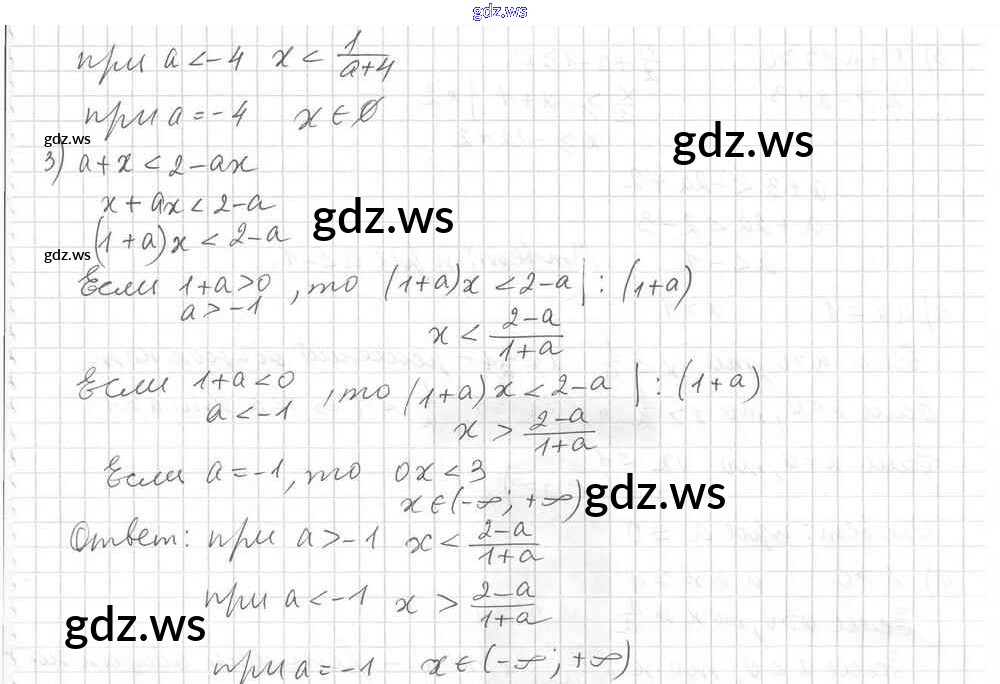 gdz.ws
при a < -4 x < 1/(a+4)
при a = -4 x ∈ Ø
gdz.ws
gdz.ws
3) a + x < 2 - ax
x + ax < 2 - a
gdz.ws
(1 + a)x < 2 - a
gdz.ws
Если 1+a>0, то (1+a)x < 2-a | : (1+a)
a > -1
x < (2-a)/(1+a)
Если 1+a<0, то (1+a)x < 2-a | : (1+a)
a < -1
x > (2-a)/(1+a)
Если a = -1, то 0x < 3
x ∈ (-∞; +∞)
gdz.ws
Ответ: при a > -1 x < (2-a)/(1+a)
при a < -1 x > (2-a)/(1+a)
gdz.ws
при a = -1 x ∈ (-∞; +∞)